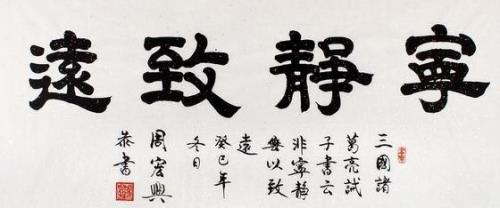 寧靜致遠
三國諸
葛亮誡
子書云
非寧靜
無以致
遠
癸巳年
冬日
周宏興
恭書